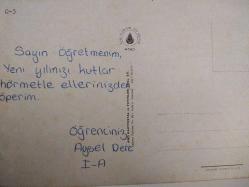 Sayın öğretmenim,
Yeni yılınızı kutlar
hörmetle ellerinizden
öperim.
Öğrenciniz
Aysel Dere
I-A